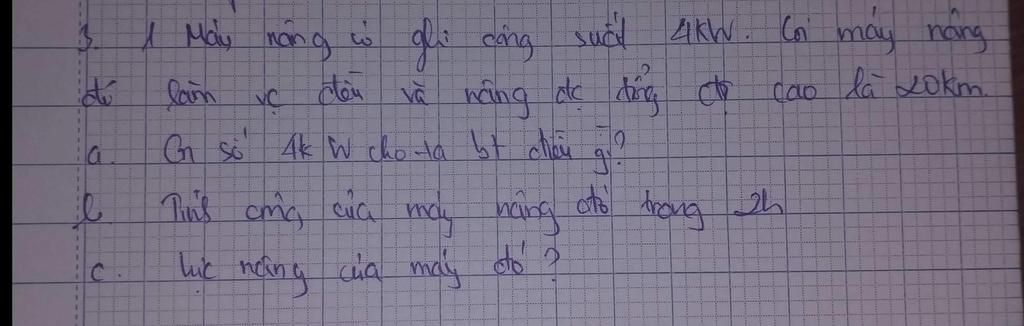 3. 1 Máy nâng có ghi công suất 4KW. Cn máy nâng
đó làm vc đều và nâng đc tổng độ cao là 20km.
a. Cn số 4k W cho ta bt điều gì?
b. Tính công của máy nâng đó trong 2h
c. lực nâng của máy đó?